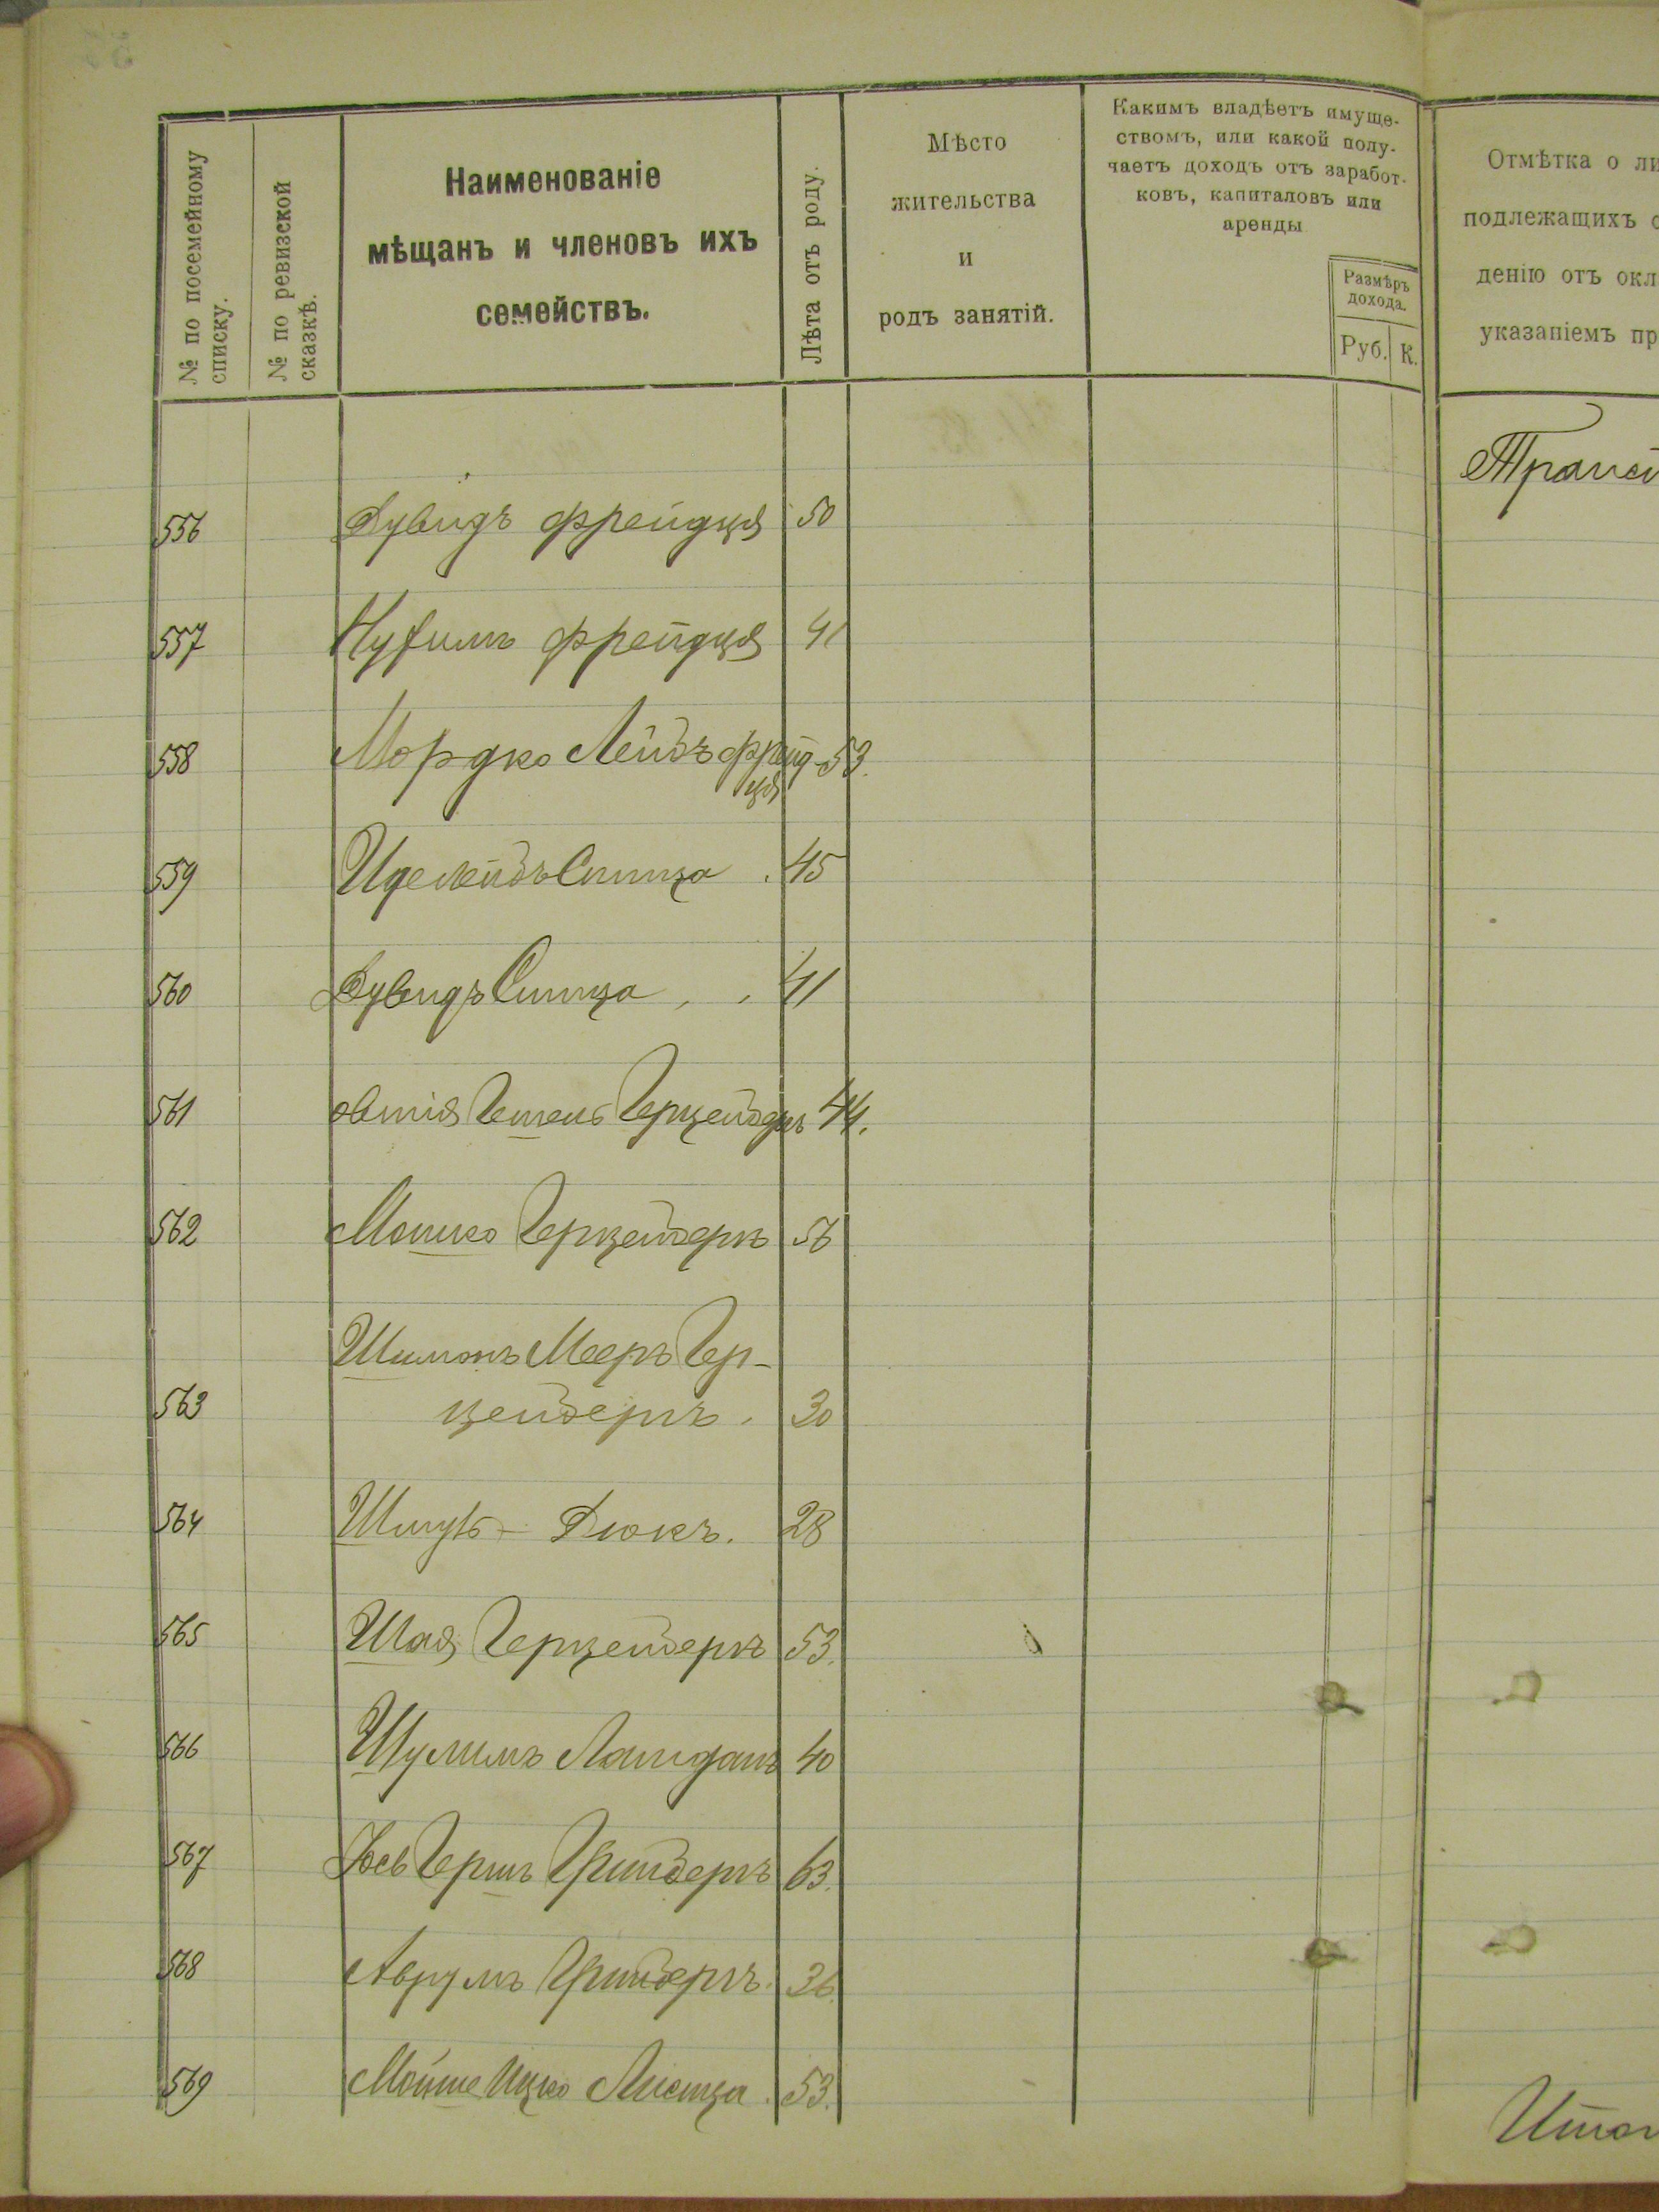 № по посемейному списку.
№ по ревизской сказкѣ.
Наименованіе
мѣщанъ и членовъ ихъ
семействъ.
Лѣта отъ роду.
Мѣсто
жительства
и
родъ занятій.
Какимъ владѣетъ имуще-
ствомъ, или какой полу-
чаетъ доходъ отъ заработ-
ковъ, капиталовъ или
аренды
Размѣръ
дохода.
Руб. К.
Отмѣтка о ли
подлежащихъ о
денію отъ окл
указаніемъ пр
556 Дувидъ Фрейдця 50
557 Нухимъ Фрейдця 41
558 Мордко Лейбъ Фрейд- 53.
ця
559 Иде Лейбъ Спица 45
560 Дувидъ Спица 41
561 Герценберъ 44.
562 Мошко Герценберъ 56
Шимонъ Мееръ Гер-
563 ценберъ. 30
564 Шмуль Дюкъ. 28
565 Шая Герценберъ 53.
566 Шулимъ 40
567 Іось Гершъ 63.
568 Аврумъ 36.
569 Мойше Ицко 53.